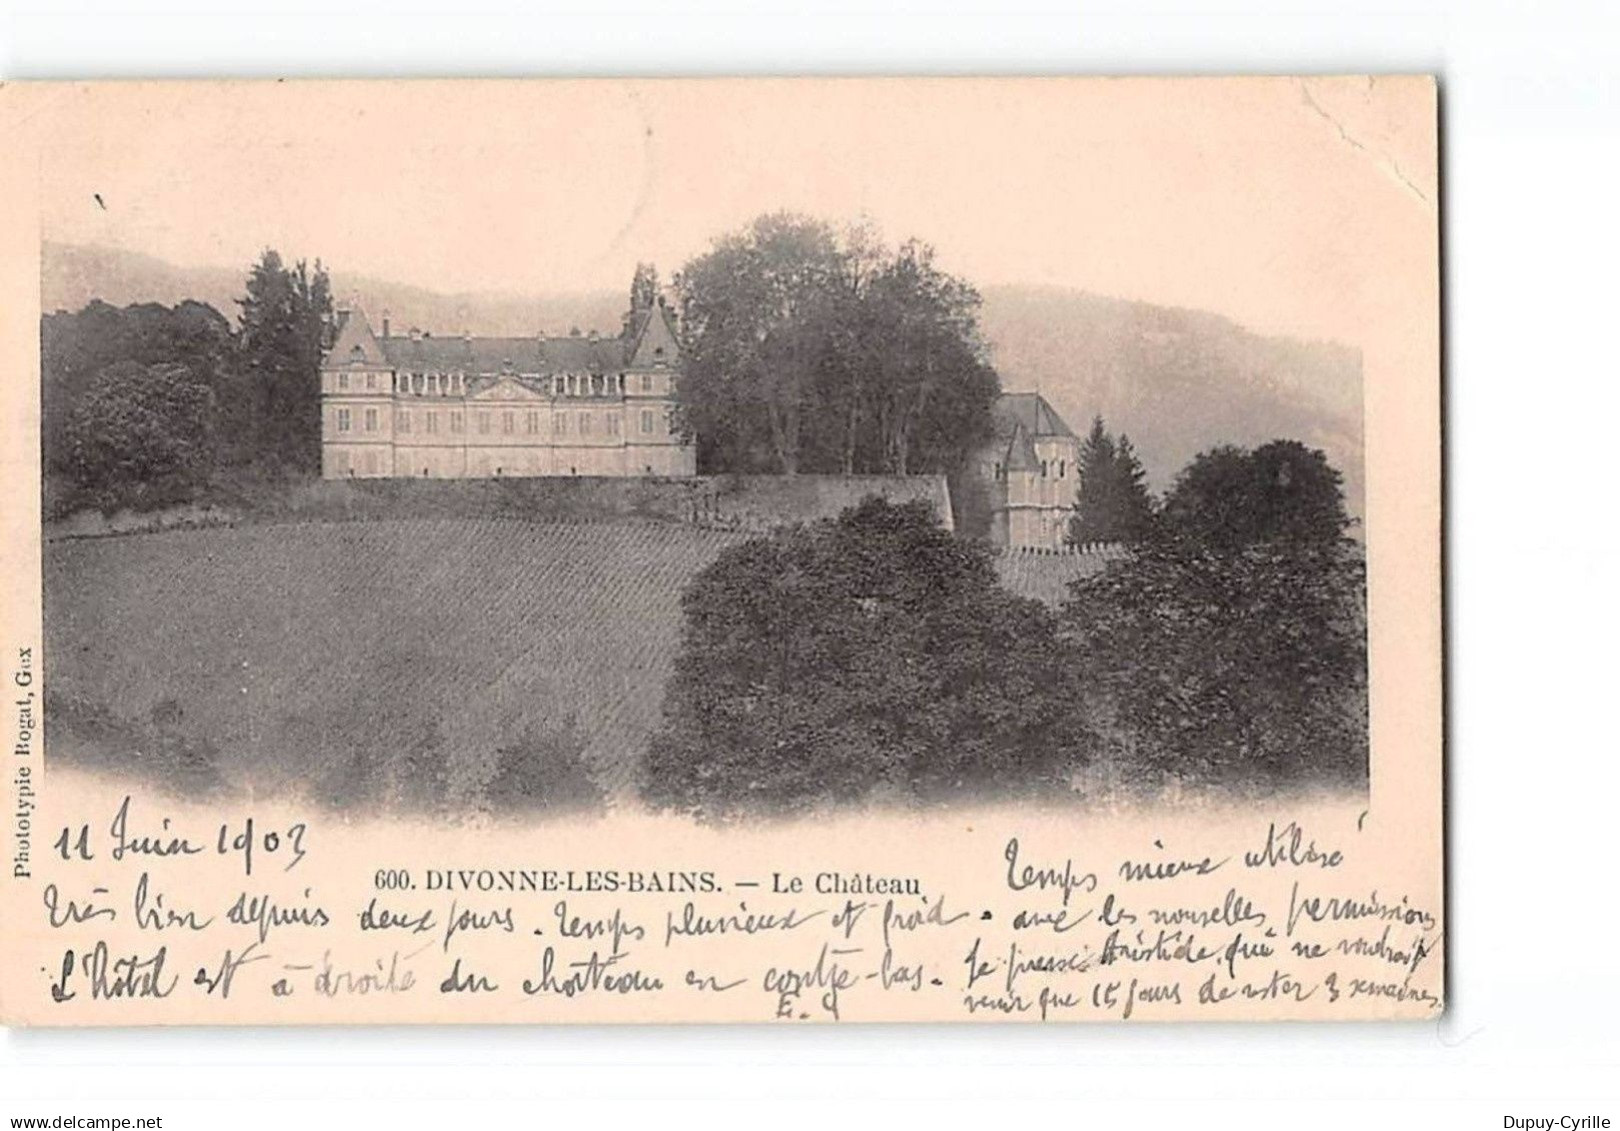 Phototypie Bogat, Gex
11 Juin 1903
600. DIVONNE-LES-BAINS. — Le Château
Très bien depuis deux jours. Temps pluvieux et froid.
L'hôtel est à droite du chateau en contre-bas.
E. G
Temps mieux utilisé
avec les nouvelles permissions
Je presse Aristide, qui ne voudrait
venir que 15 jours de rester 3 semaines.
delcampe.net
Dupuy-Cyrille